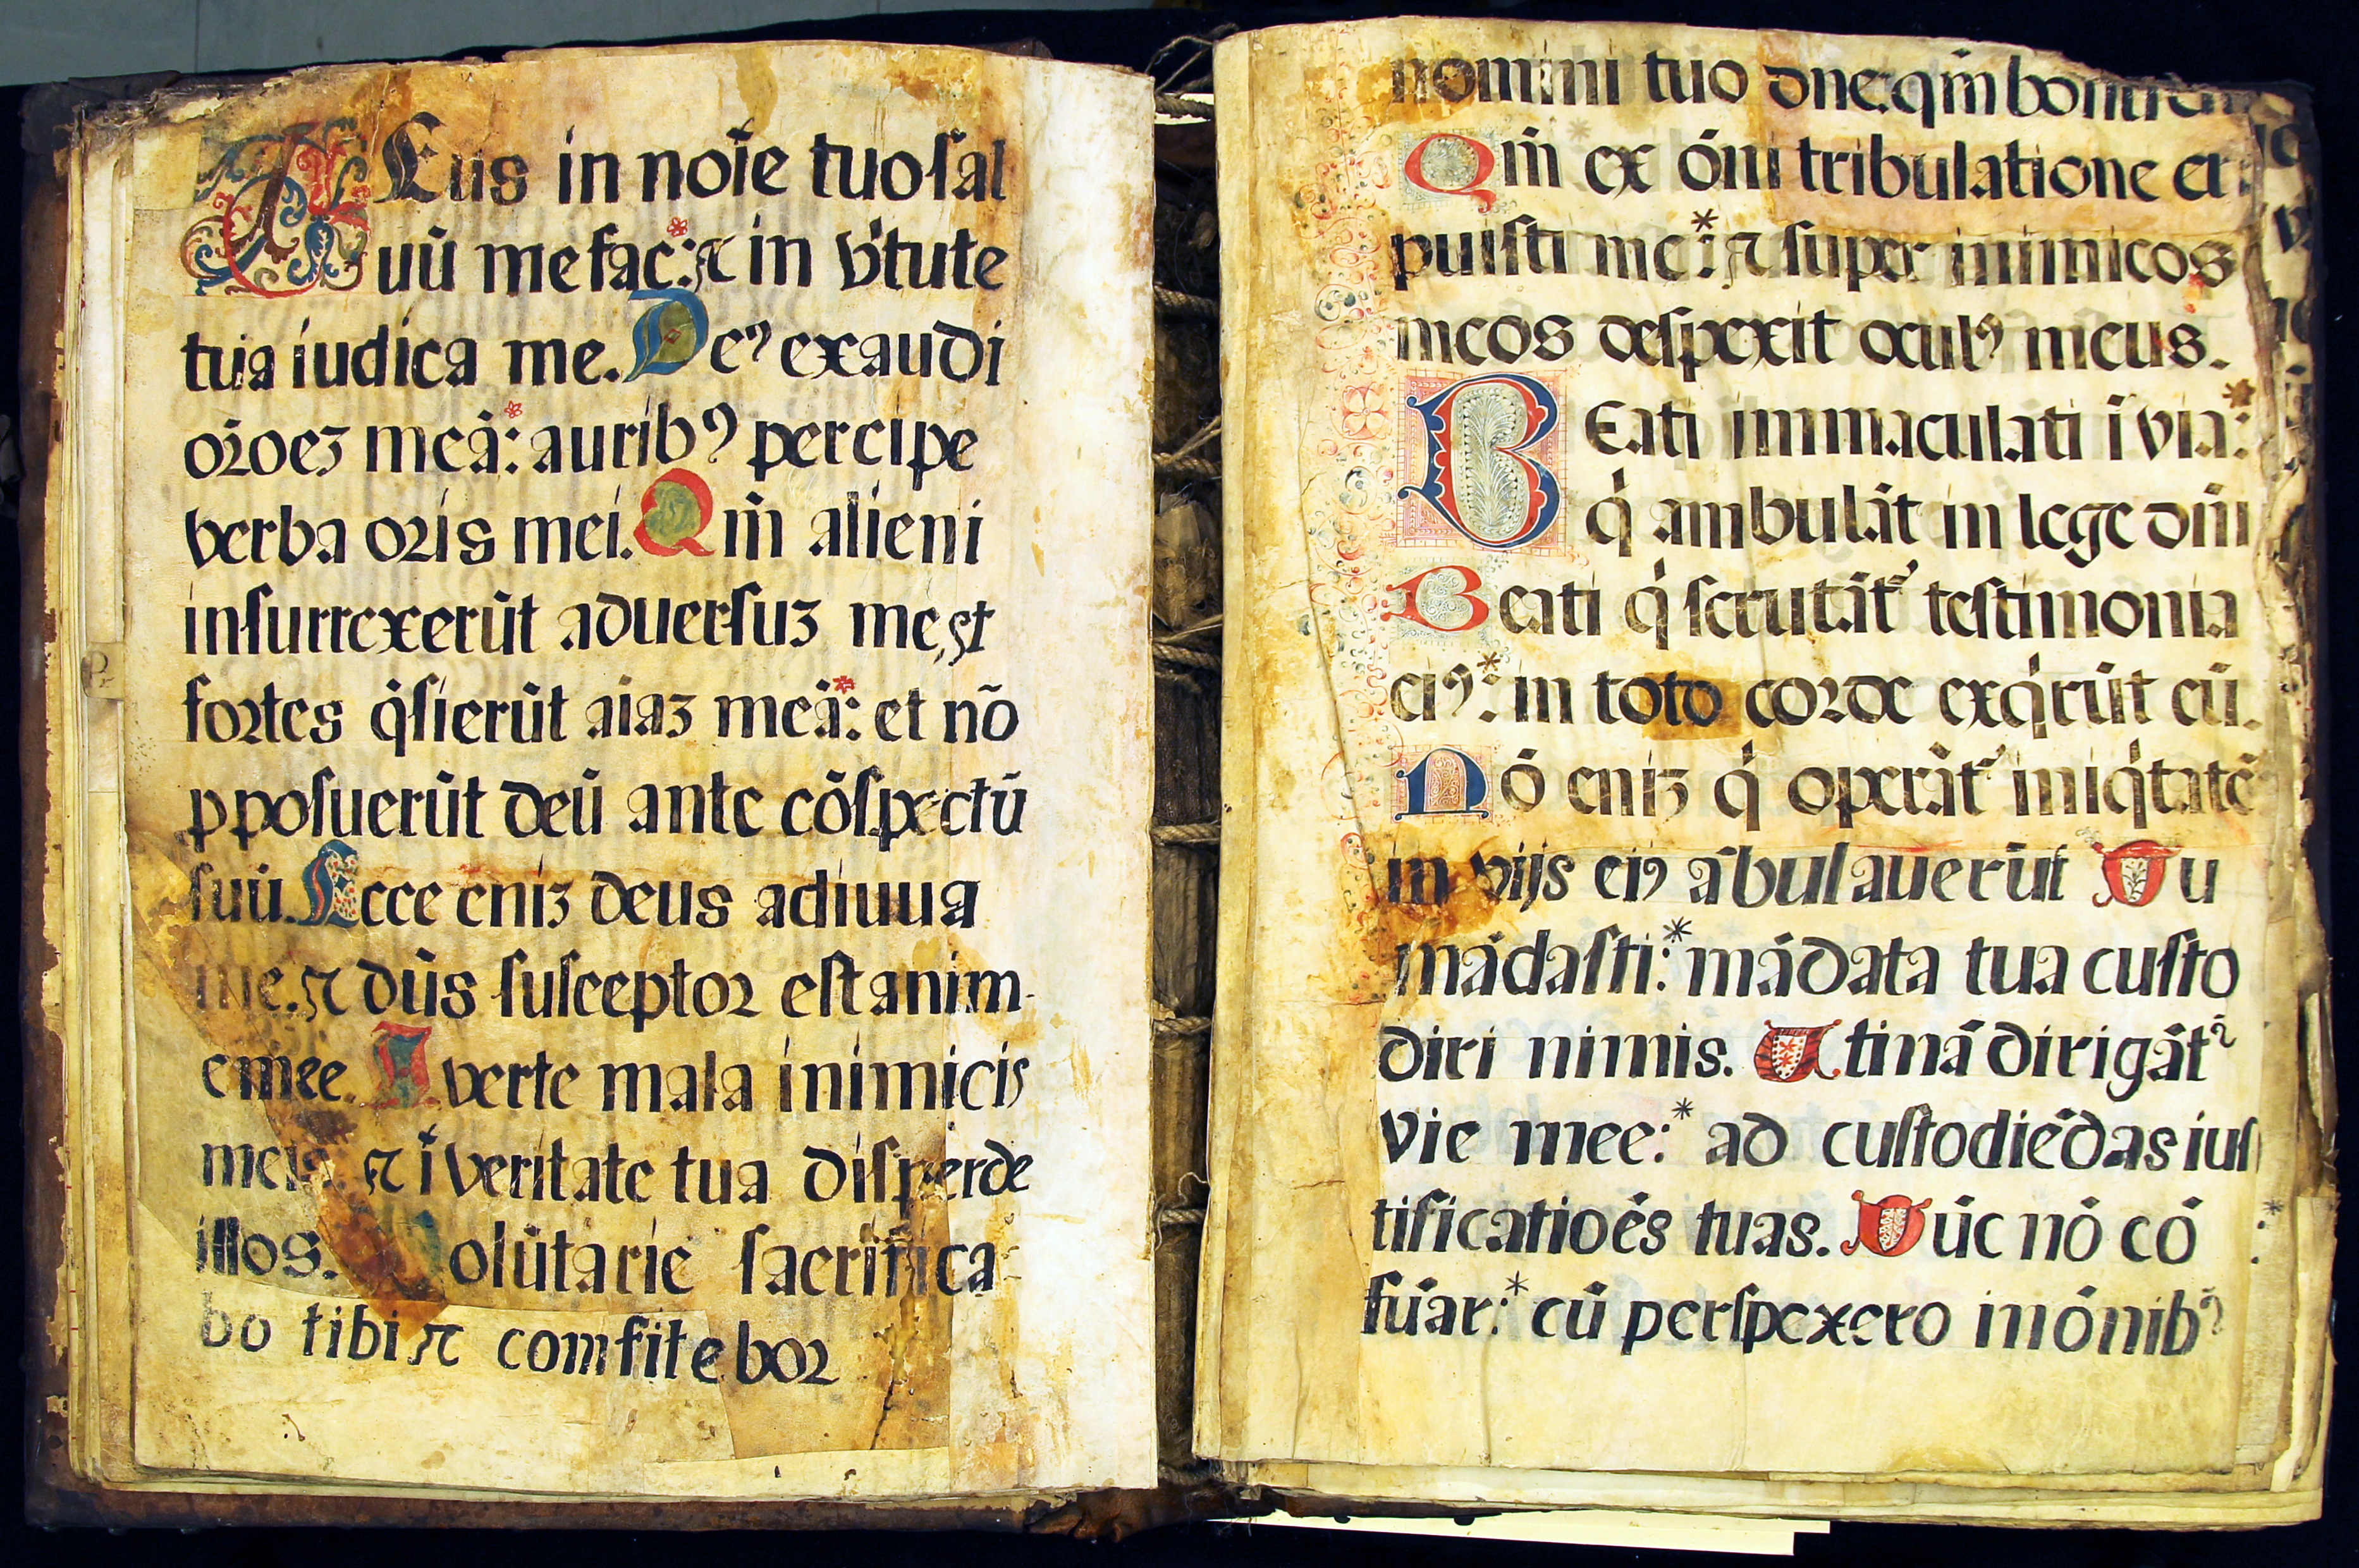 Eus in noīe tuo ſal
uū me fac: ⁊ in v̓tute
tua iudica me. Deꝰ exaudi
or̄oeʒ meā: auribꝰ percipe
verba oris mei. Qm̄ alieni
inſurrexerūt aduerſuʒ me, et
fortes q̓ſierūt aiaʒ meā: et nō
ꝓpoſuerūt deū ante cōſpectū
ſuū. Ecce eniʒ deus adiuua
me. ⁊ dūs ſuſceptor eſt anim-
e mee. Averte mala inimicis
meis. ⁊ ī veritate tua diſperde
illos. Volūtarie ſacrifica-
bo tibi ⁊ comfitebor
nomini tuo dne: qm̄ bonu
Qm̄ ex ōni tribulatione er
puiſti me: ⁊ ſuper inimicos
meos deſpexit oculꝰ meus.
Beati immaculati ī via:
q̓ ambulāt in lege dn̄i
Beati q̓ ſcrutāt᷑ teſtimonia
eiꝰ: in toto corde exq̓rūt eū.
Nō eniʒ q̓ operāt᷑ iniq̓tatē
in vijs eiꝰ ābulauerūt Tu
mādaſti: mādata tua cuſto
diri nimis. Utinā dirigāt᷑
vie mee: ad cuſtodiēdas iuſ
tificatioēs tuas. Tūc nō cō
fūdar: cū perſpexero in ōnibꝰ